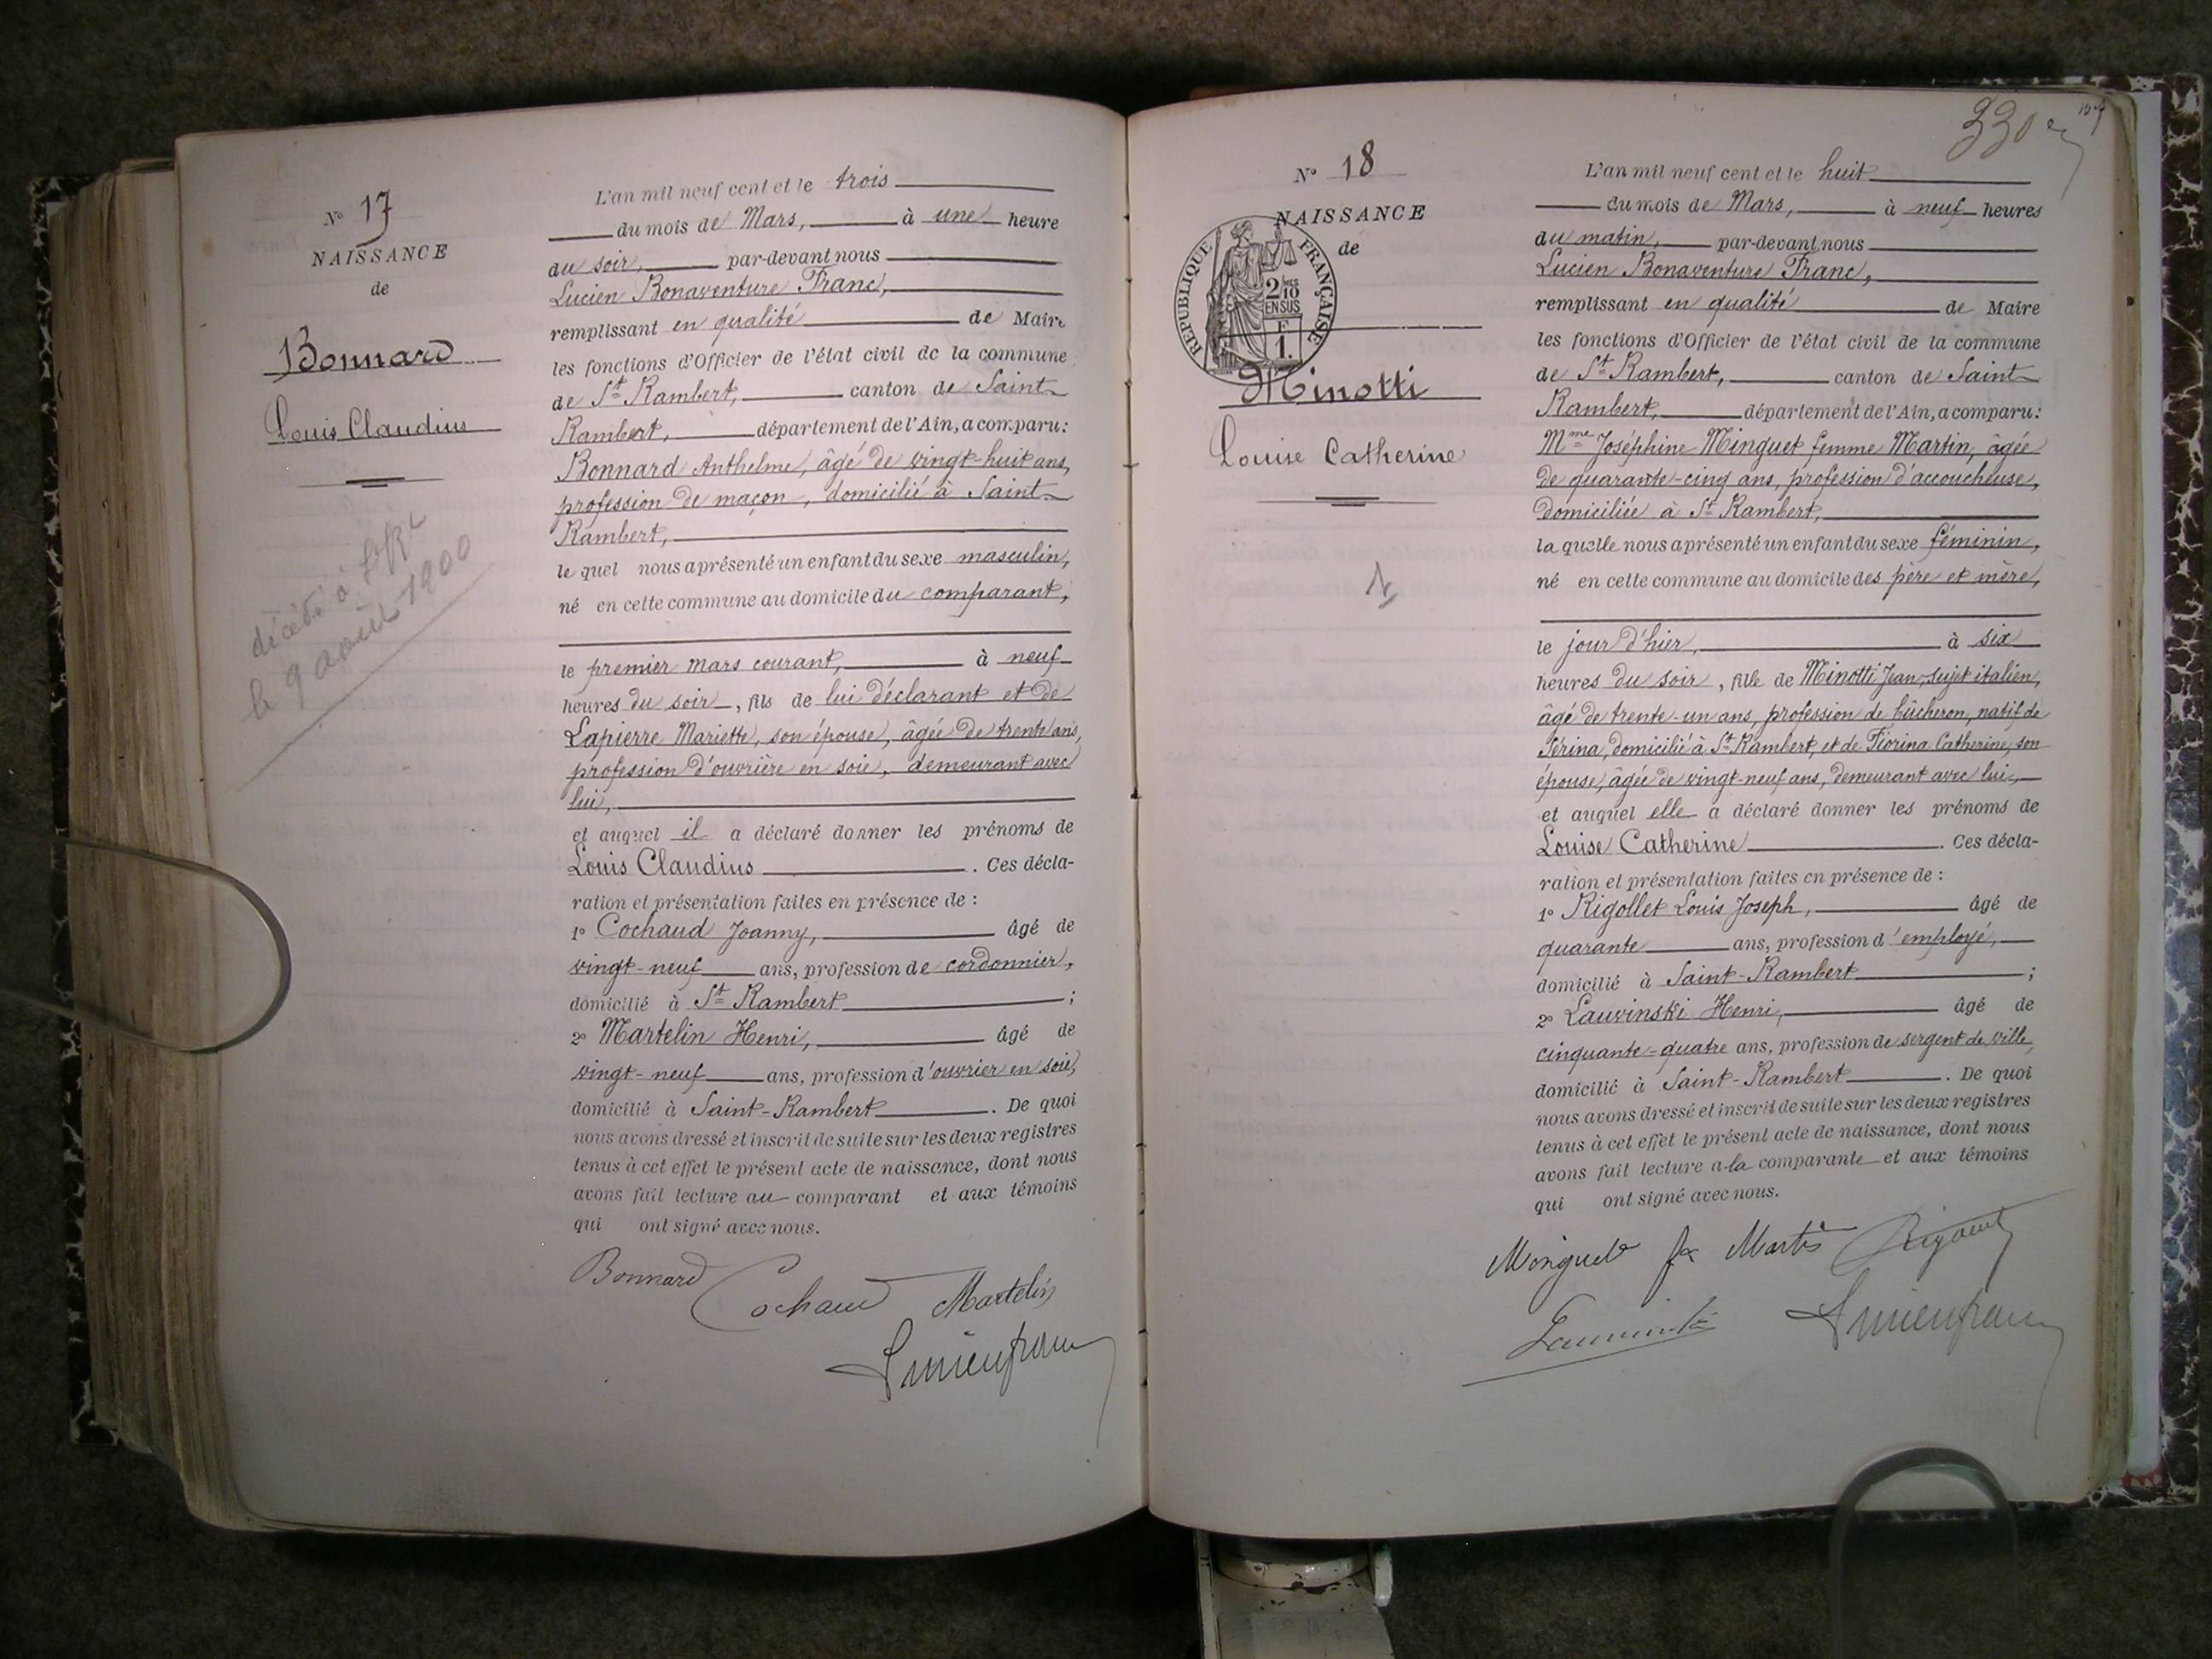 N° 17
NAISSANCE
de
Bonnard
Louis Claudius
décédé à
le 9 août 1900
L'an mil neuf cent et le trois
du mois de Mars, à une heure
du soir, par-devant nous
Lucien Bonaventure Franc,
remplissant en qualité de Maire
les fonctions d'Officier de l'état civil de la commune
de St Rambert, canton de Saint-
Rambert, département de l'Ain, a comparu:
Bonnard Anthelme, âgé de vingt-huit ans,
profession de maçon, domicilié à Saint-
Rambert,
le quel nous a présenté un enfant du sexe masculin,
né en cette commune au domicile du comparant,
le premier mars courant, à neuf
heures du soir, fils de lui déclarant et de
Lapierre Mariette, son épouse, âgée de trente ans,
profession d'ouvrière en soie, demeurant avec
lui,
et auquel il a déclaré donner les prénoms de
Louis Claudius. Ces décla-
ration et présentation faites en présence de :
1° Cochaud Joanny, âgé de
vingt-neuf ans, profession de cordonnier,
domicilié à St Rambert ;
2° Martelin Henri, âgé de
vingt-neuf ans, profession d'ouvrier en soie,
domicilié à Saint-Rambert. De quoi
nous avons dressé et inscrit de suite sur les deux registres
tenus à cet effet le présent acte de naissance, dont nous
avons fait lecture au comparant et aux témoins
qui ont signé avec nous.
Bonnard Cochaud Martelin
330
N° 18
NAISSANCE
de
REPUBLIQUE FRANÇAISE
2 MES
10
EN SUS
F
1.
Minotti
Louise Catherine
L'an mil neuf cent et le huit
du mois de Mars, à neuf heures
du matin, par-devant nous
Lucien Bonaventure Franc,
remplissant en qualité de Maire
les fonctions d'Officier de l'état civil de la commune
de St Rambert, canton de Saint-
Rambert, département de l'Ain, a comparu:
Mme Joséphine Minguet femme Martin, âgée
de quarante-cinq ans, profession d'accoucheuse,
domiciliée à St Rambert,
la quelle nous a présenté un enfant du sexe féminin,
né en cette commune au domicile des père et mère,
le jour d'hier, à six
heures du soir, fille de Minotti Jean, sujet italien,
âgé de trente-un ans, profession de bûcheron, natif de
Sérina, domicilié à St Rambert, et de Fiorina Catherine, son
épouse, âgée de vingt-neuf ans, demeurant avec lui,
et auquel elle a déclaré donner les prénoms de
Louise Catherine. Ces décla-
ration et présentation faites en présence de :
1° Rigollet Louis Joseph, âgé de
quarante ans, profession d'employé,
domicilié à Saint-Rambert ;
2° Lauvinski Henri, âgé de
cinquante-quatre ans, profession de sergent de ville,
domicilié à Saint-Rambert. De quoi
nous avons dressé et inscrit de suite sur les deux registres
tenus à cet effet le présent acte de naissance, dont nous
avons fait lecture a la comparante et aux témoins
qui ont signé avec nous.
Minguet fe Martin